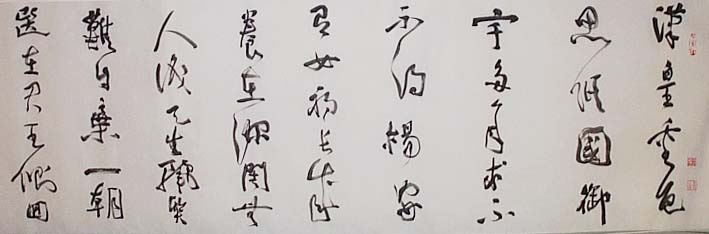 漢皇重色
思傾國御
宇多年求不
不得楊家
有女初長成
養在深閨無
人識天生麗質
難自棄一朝
選在君王側回